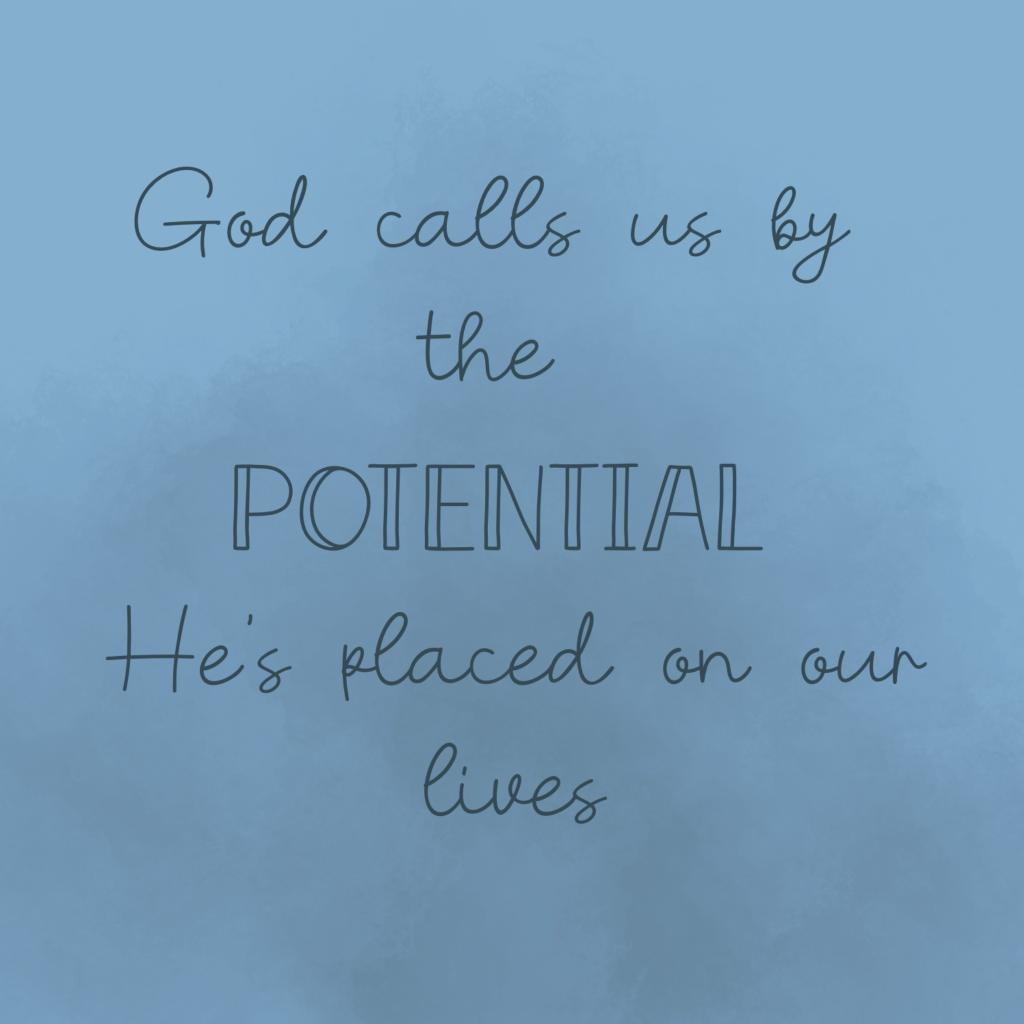 God calls us by
the
POTENTIAL
He's placed on our
lives